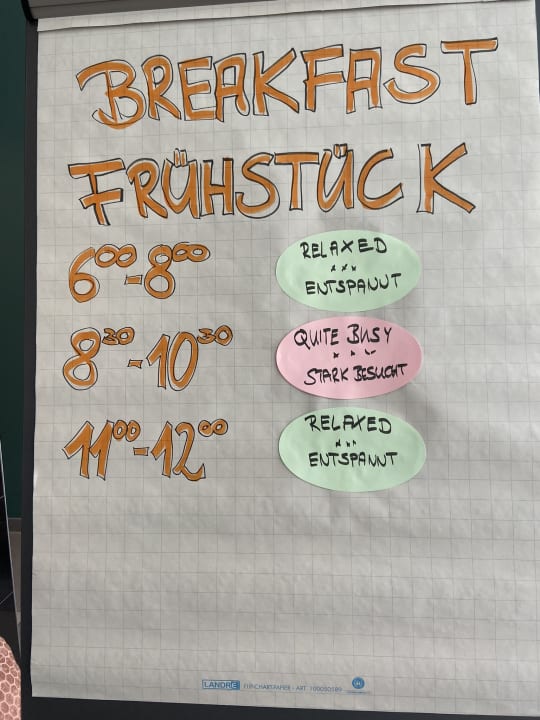 BREAKFAST
FRÜHSTÜCK
6⁰⁰-8⁰⁰
RELAXED
ENTSPANNT
8³⁰-10³⁰
QUITE BUSY
STARK BESUCHT
11⁰⁰-12⁰⁰
RELAXED
ENTSPANNT
LANDRÉ FLIPCHARTPAPIER - ART. 100050589